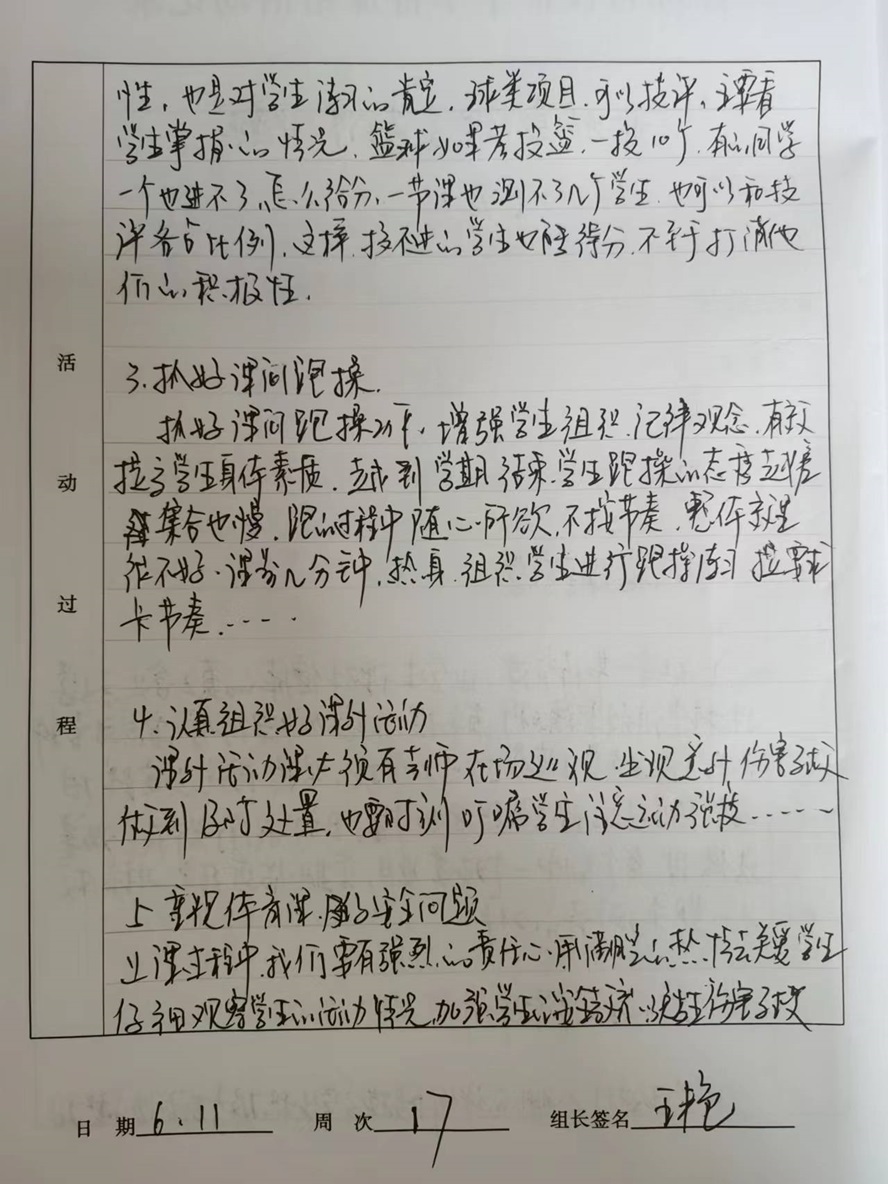 性,也是对学生练习的肯定,球类项目,可以技评,主要看
学生掌握的情况,篮球如果考投篮,一投10个,有的同学
一个也进不了,怎么给分,一节课也测不了几个学生,也可以和技
评各占比例,这样,投不进的学生也能得分,不至于打消他
们的积极性.
3.抓好课间跑操.
抓好课间跑操水平,增强学生组织纪律观念,有效
提高学生身体素质,越到学期结束学生跑操的态度越差
集合也慢,跑的过程中随心所欲,不按节奏,整体效果
很不好.课前几分钟,热身,组织学生进行跑操练习 提要求
卡节奏......
4.认真组织好课外活动
课外活动课必须有老师在场巡视,出现意外伤害事故
做到及时处置,也要时刻叮嘱学生注意运动强度......
5 重视体育课的安全问题
上课过程中,我们要有强烈的责任心,用满腔的热情去关爱学生
仔细观察学生的活动情况,加强学生的安全,以防发生伤害事故
活
动
过
程
日 期 6.11 周 次 17 组长签名 王艳